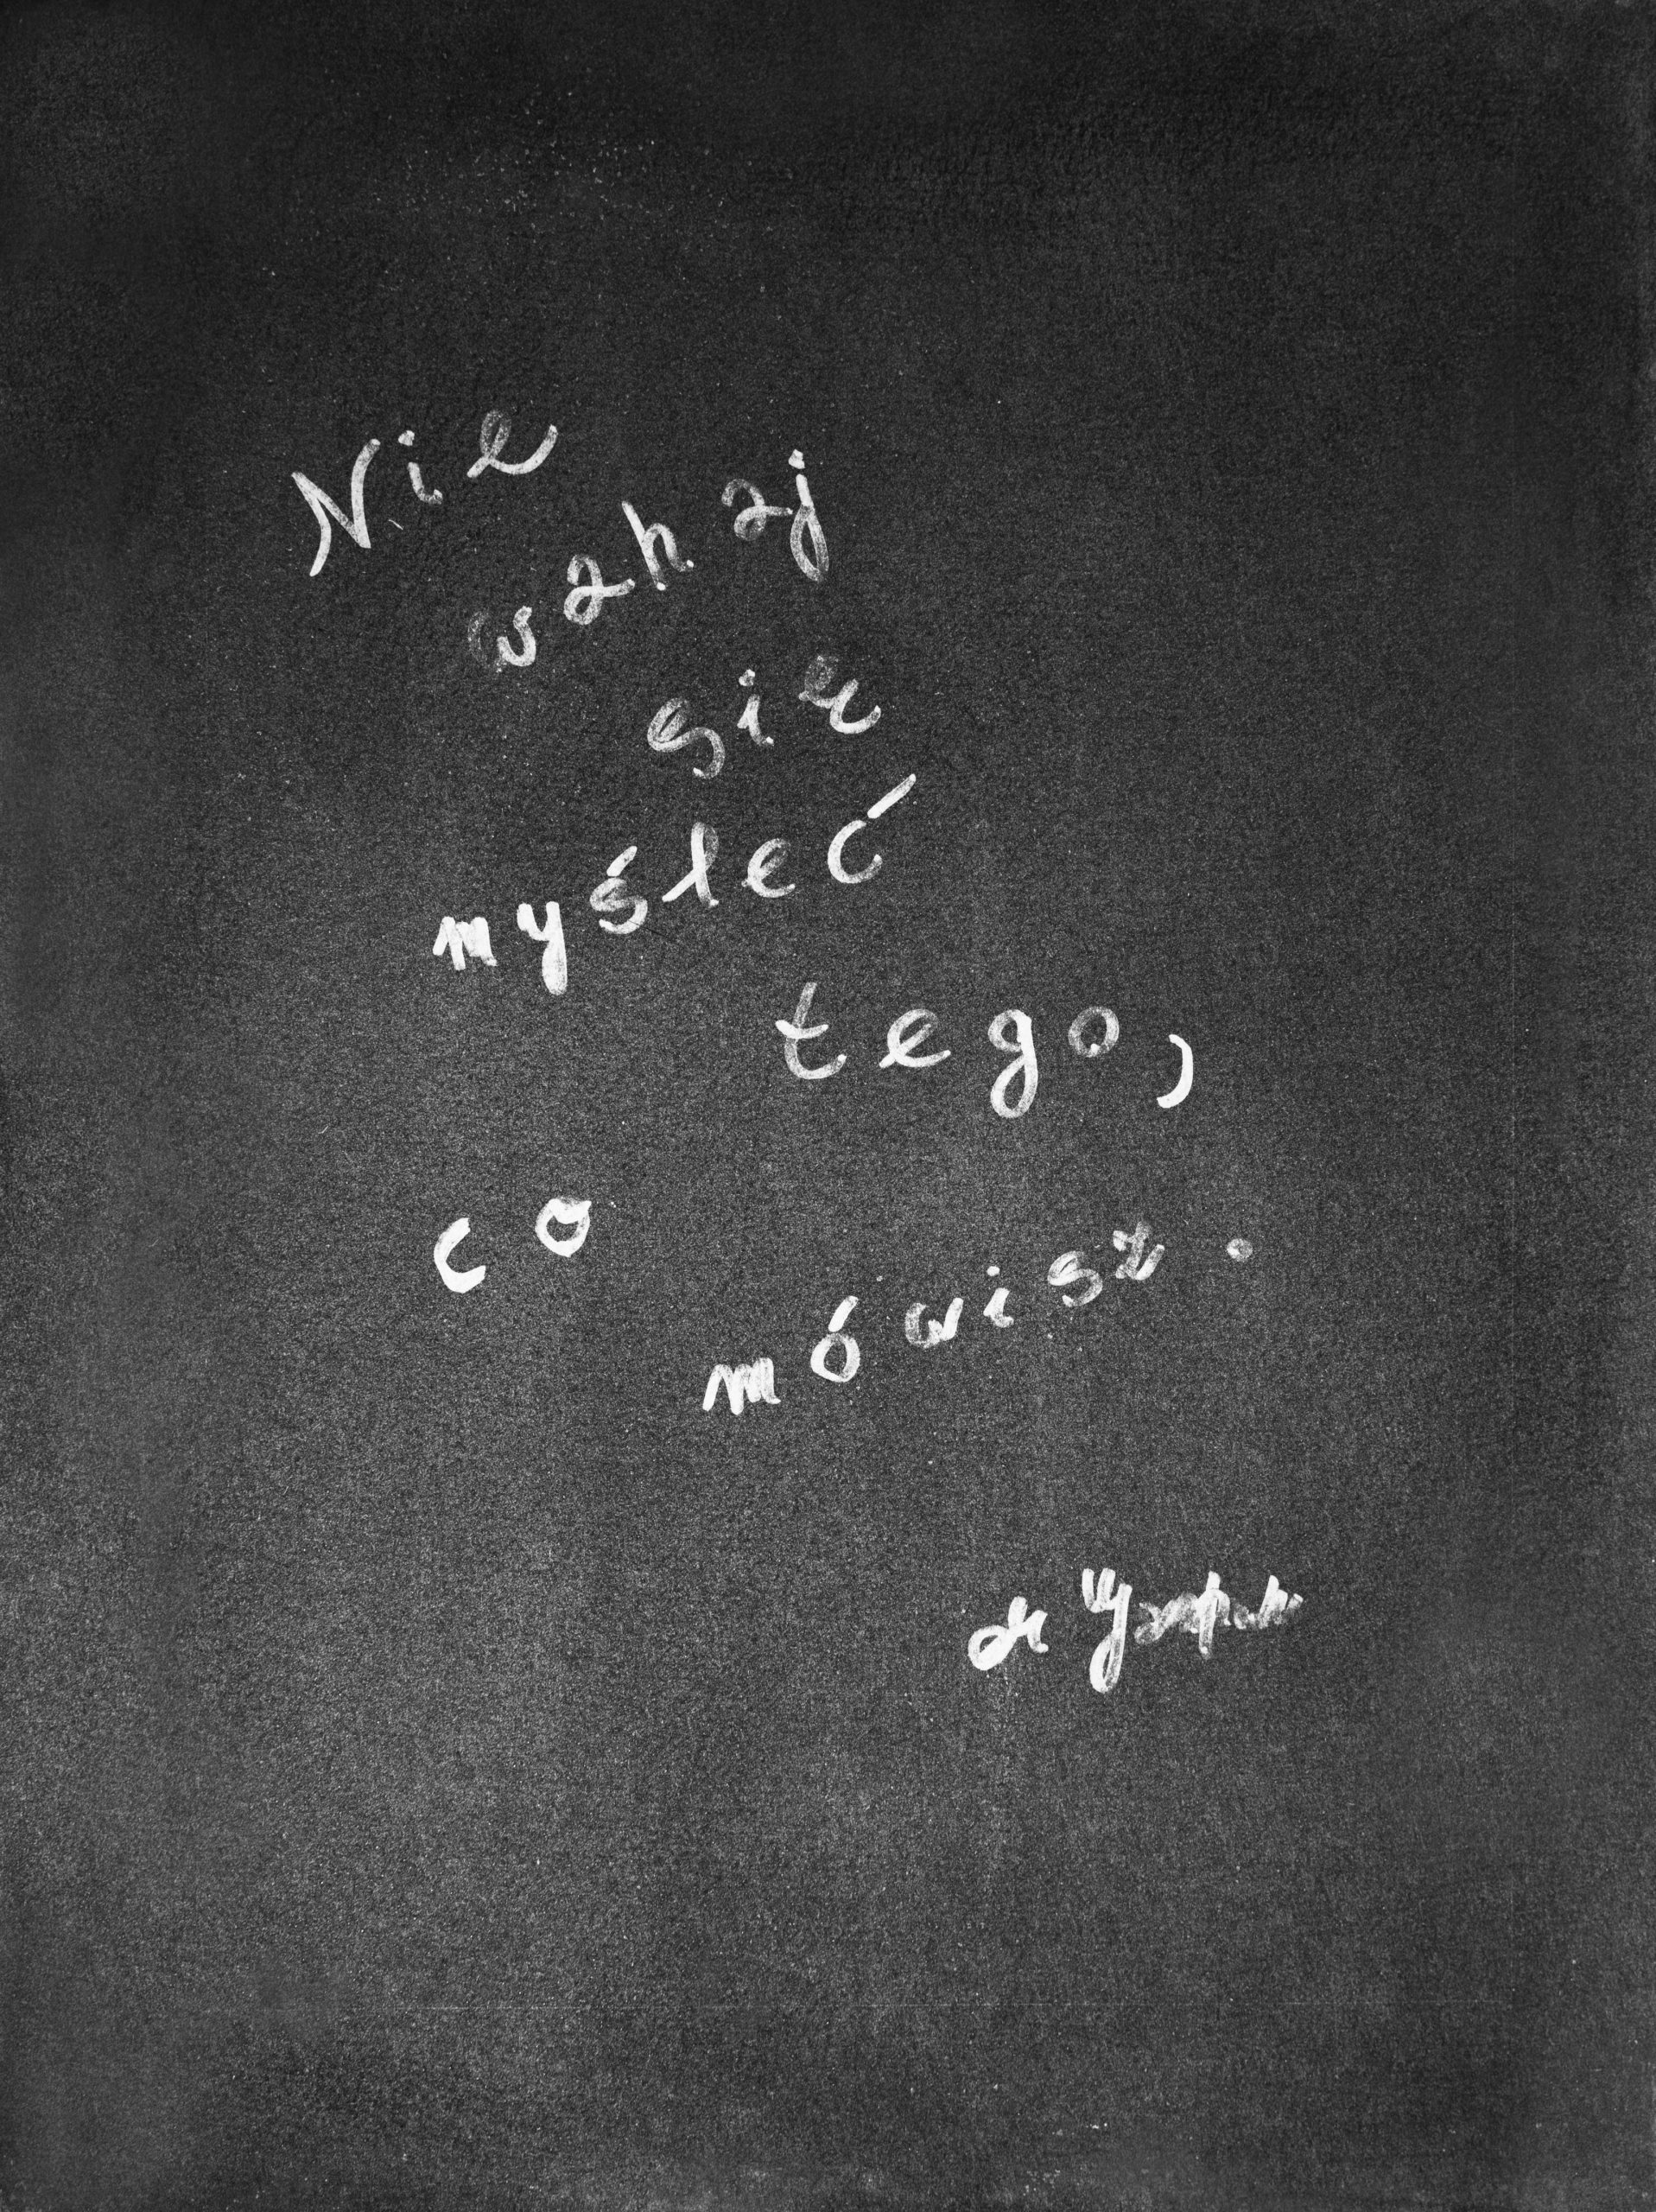 Nie
wahaj
się
myśleć
tego,
co
mówisz.